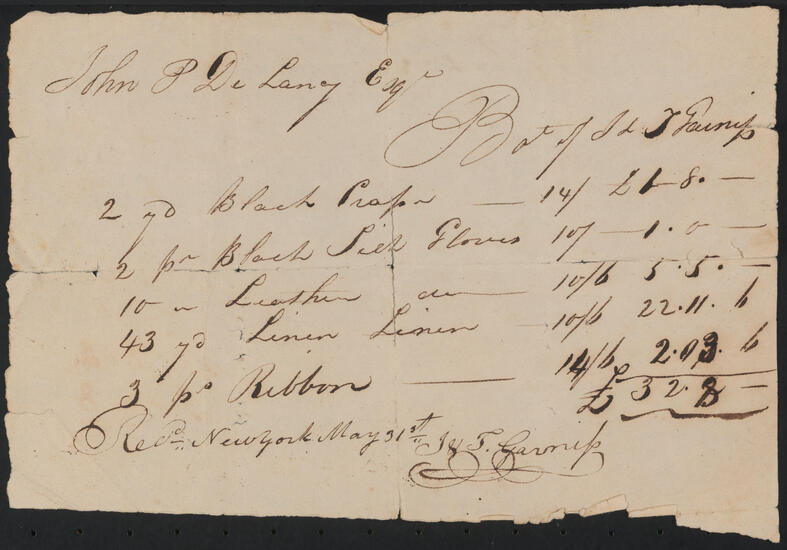 John P De Lancy Esqr
Bot of J & T Garniss
2 yd Black Crape — 14/ £1-8. —
2 pr Black Silk Gloves 10/ — 1. 0 —
10 " Leather do — 10/6 5. 5. —
43 yd Linen Linen — 10/6 22. 11. 6
3 ps Ribbon — 14/6 2. 03. 6
£ 32. 8 —
Recd. New York May 31st J & T. Garniss